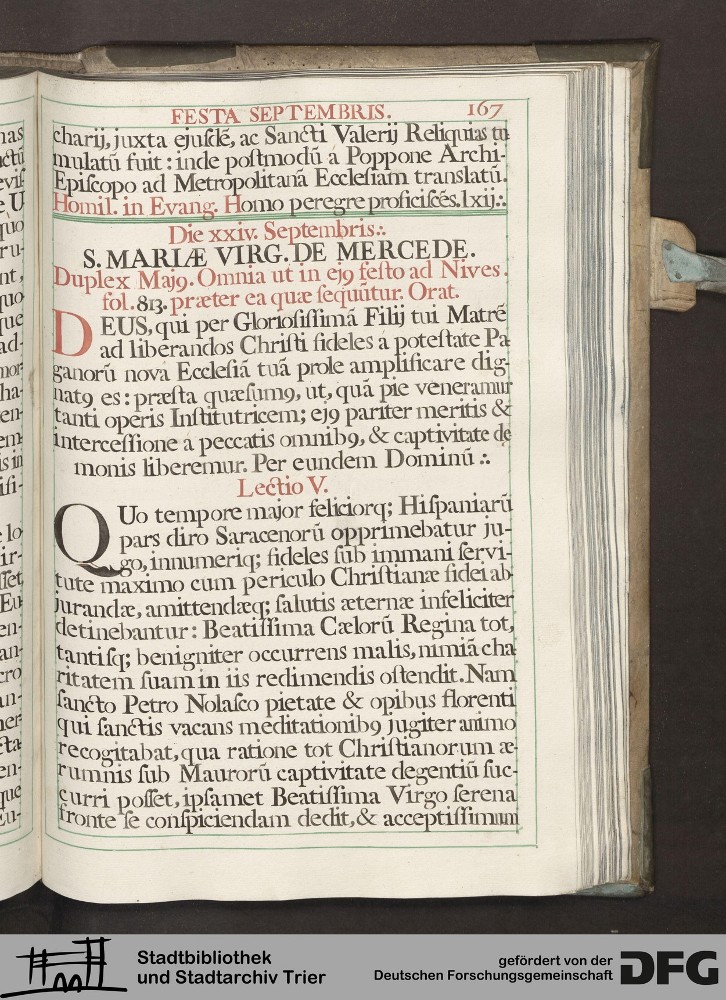 FESTA SEPTEMBRIS. 167
charij, juxta ejuſdē, ac Sancti Valerij Reliquias tu
mulatū fuit: inde poſtmodū á Poppone Archi-
Epiſcopo ad Metropolitanā Eccleſiam translatū.
Homil. in Evang. Homo peregre proficiſcēs. lxij.:.
Die xxiv. Septembris.:.
S. MARIÆ VIRG. DE MERCEDE.
Duplex Maj9. Omnia ut in ej9 feſto ad Nives.
fol. 813. præter ea quæ ſequūtur. Orat.
DEUS, qui per Glorioſiſſimā Filij tui Matrē
ad liberandos Chriſti fideles á poteſtate Pa
ganorū nová Eccleſiā tuā prole amplificare dig-
nat9 es: præſta quæſum9, ut, quā pie veneramur
tanti operis Inſtitutricem; ej9 pariter meritis &
interceſſione á peccatis omnib9, & captivitate dę
monis liberemur. Per eundem Dominū .:.
Lectio V.
QUo tempore major feliciorq; Hiſpaniarū
pars diro Saracenorū opprimebatur ju-
go, innumeriq; fideles ſub immani ſervi-
tute maximo cum periculo Chriſtianæ fidei ab-
jurandæ, amittendæq; ſalutis æternæ infeliciter
detinebantur: Beatiſſima Cælorū Regina tot,
tantiſq; benigniter occurrens malis, nimiā cha
ritatem ſuam in iis redimendis oſtendit. Nam
ſancto Petro Nolaſco pietate & opibus florenti
qui ſanctis vacans meditationib9 jugiter animo
recogitabat, qua ratione tot Chriſtianorum æ-
rumnis ſub Maurorū captivitate degentiū ſuc-
curri poſſet, ipſamet Beatiſſima Virgo ſerena
fronte ſe conſpiciendam dedit, & acceptiſſimum
Stadtbibliothek
und Stadtarchiv Trier
gefördert von der
Deutschen Forschungsgemeinschaft
DFG